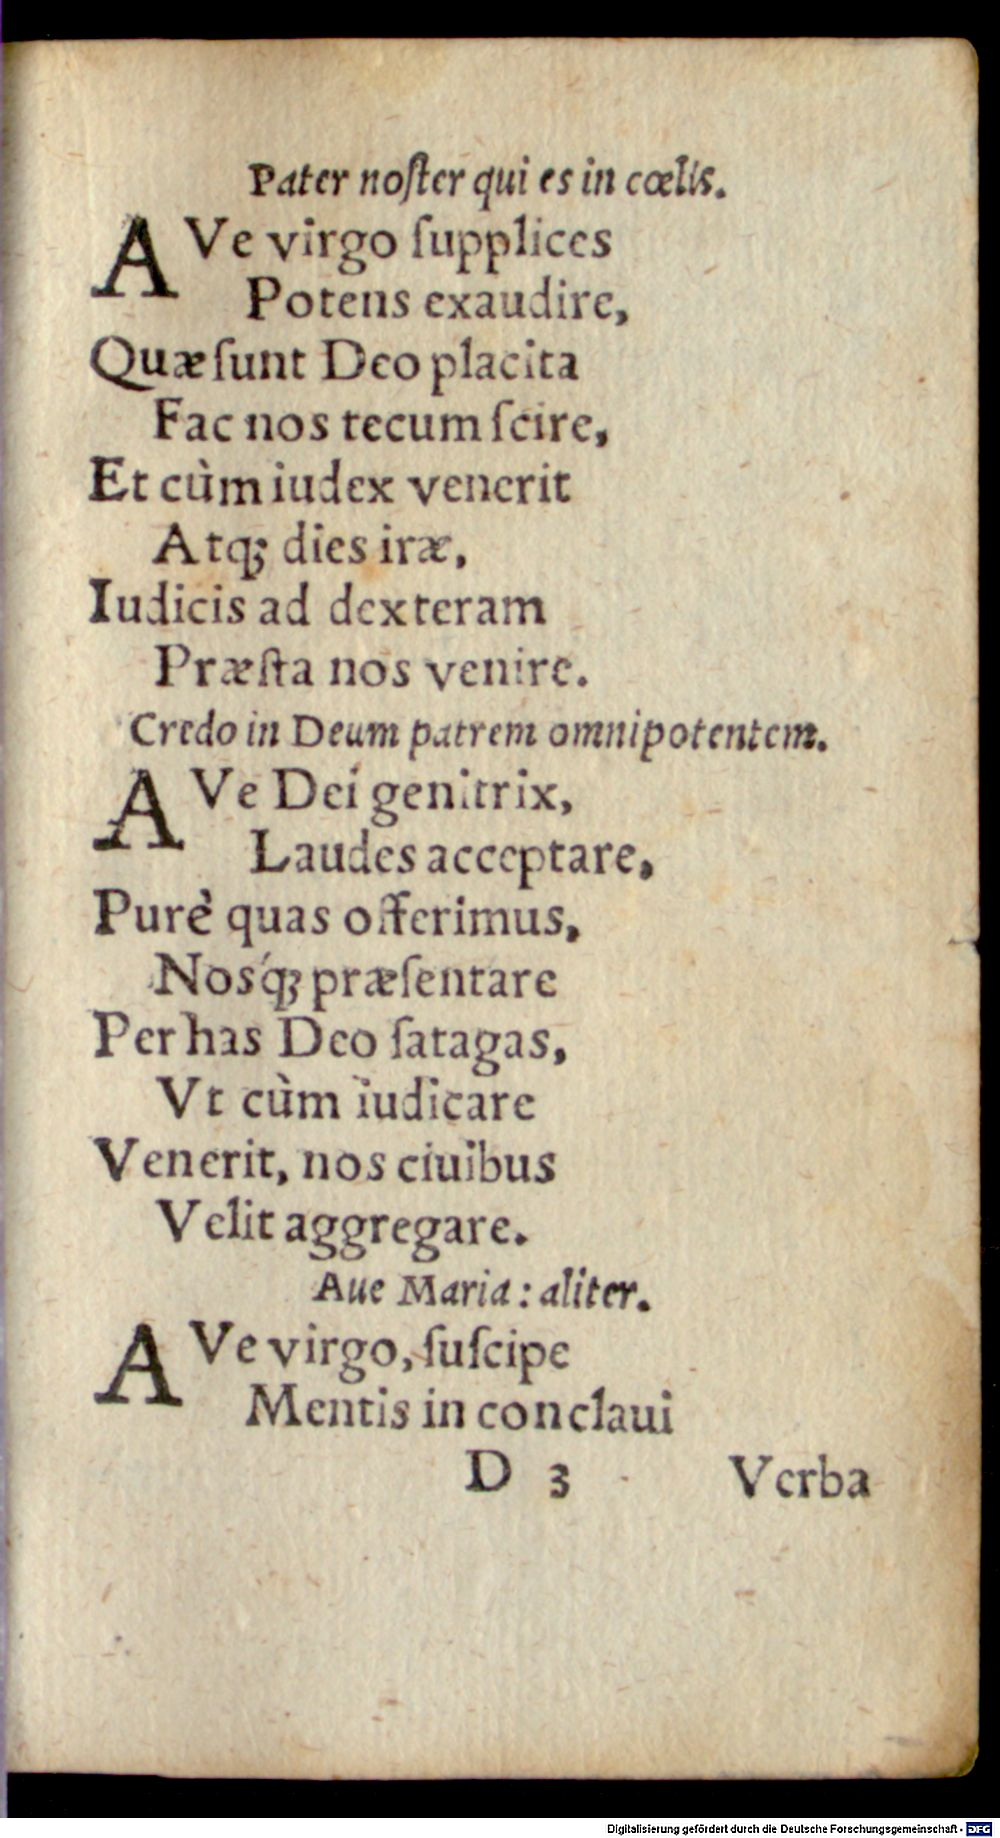 Pater noſter qui es in cœlis.
AVe virgo ſupplices
Potens exaudire,
Quæ ſunt Deo placita
Fac nos tecum ſcire,
Et cùm iudex venerit
Atq; dies iræ,
Iudicis ad dexteram
Præſta nos venire.
Credo in Deum patrem omnipotentem.
AVe Dei genitrix,
Laudes acceptare,
Purè quas offerimus,
Nosq́; præſentare
Per has Deo ſatagas,
Vt cùm iudicare
Venerit, nos ciuibus
Velit aggregare.
Aue Maria: aliter.
AVe virgo, ſuſcipe
Mentis in conclaui
D 3 Verba
Digitalisierung gefördert durch die Deutsche Forschungsgemeinschaft - DFG